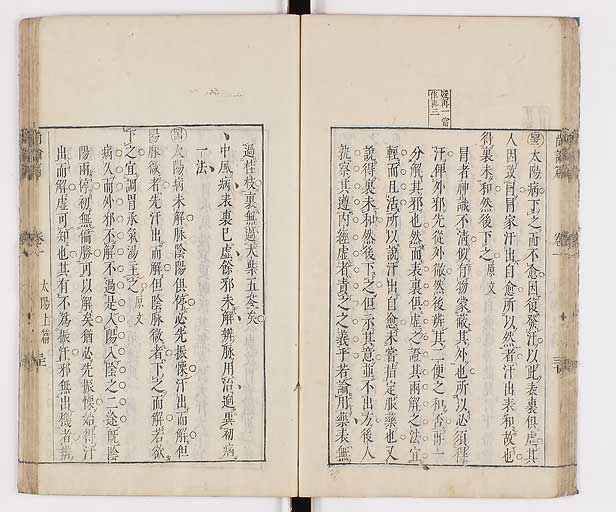 疑再一當作再三
太陽病下之而不愈因復發汗以此表裏俱虛其
人因致冒冒家汗出自愈所以然者汗出表和故也
得裏未和然後下之原文
冒者神識不清似有物蒙蔽其外也所以必須得
汗俾外邪先從外徹然後辨其二便之和否再一
分解其邪也然而表裏俱虛之證其兩解之法宜
輕而且活所以說汗出自愈未嘗指定服藥也又
說得裏未和然後下之但示其意並不出方後人
孰察其遵內經虛者責之之義乎若論用藥表無
過桂枝裏無過大柴五苓矣
中風病表裏已虛餘邪未解辨脉用治逈異初病
一法
太陽病未解脉陰陽俱停必先振慄汗出而解但
陽脉微者先汗出而解但陰脉微者下之而解若欲
下之宜調胃承氣湯主之原文
病久而外邪不解不過是入陰之二途既陰
陽兩停初無偏勝可以解矣猶必先振慄始得汗
出而解虛可知也其有不為振汗邪無出機者辨
太陽上篇